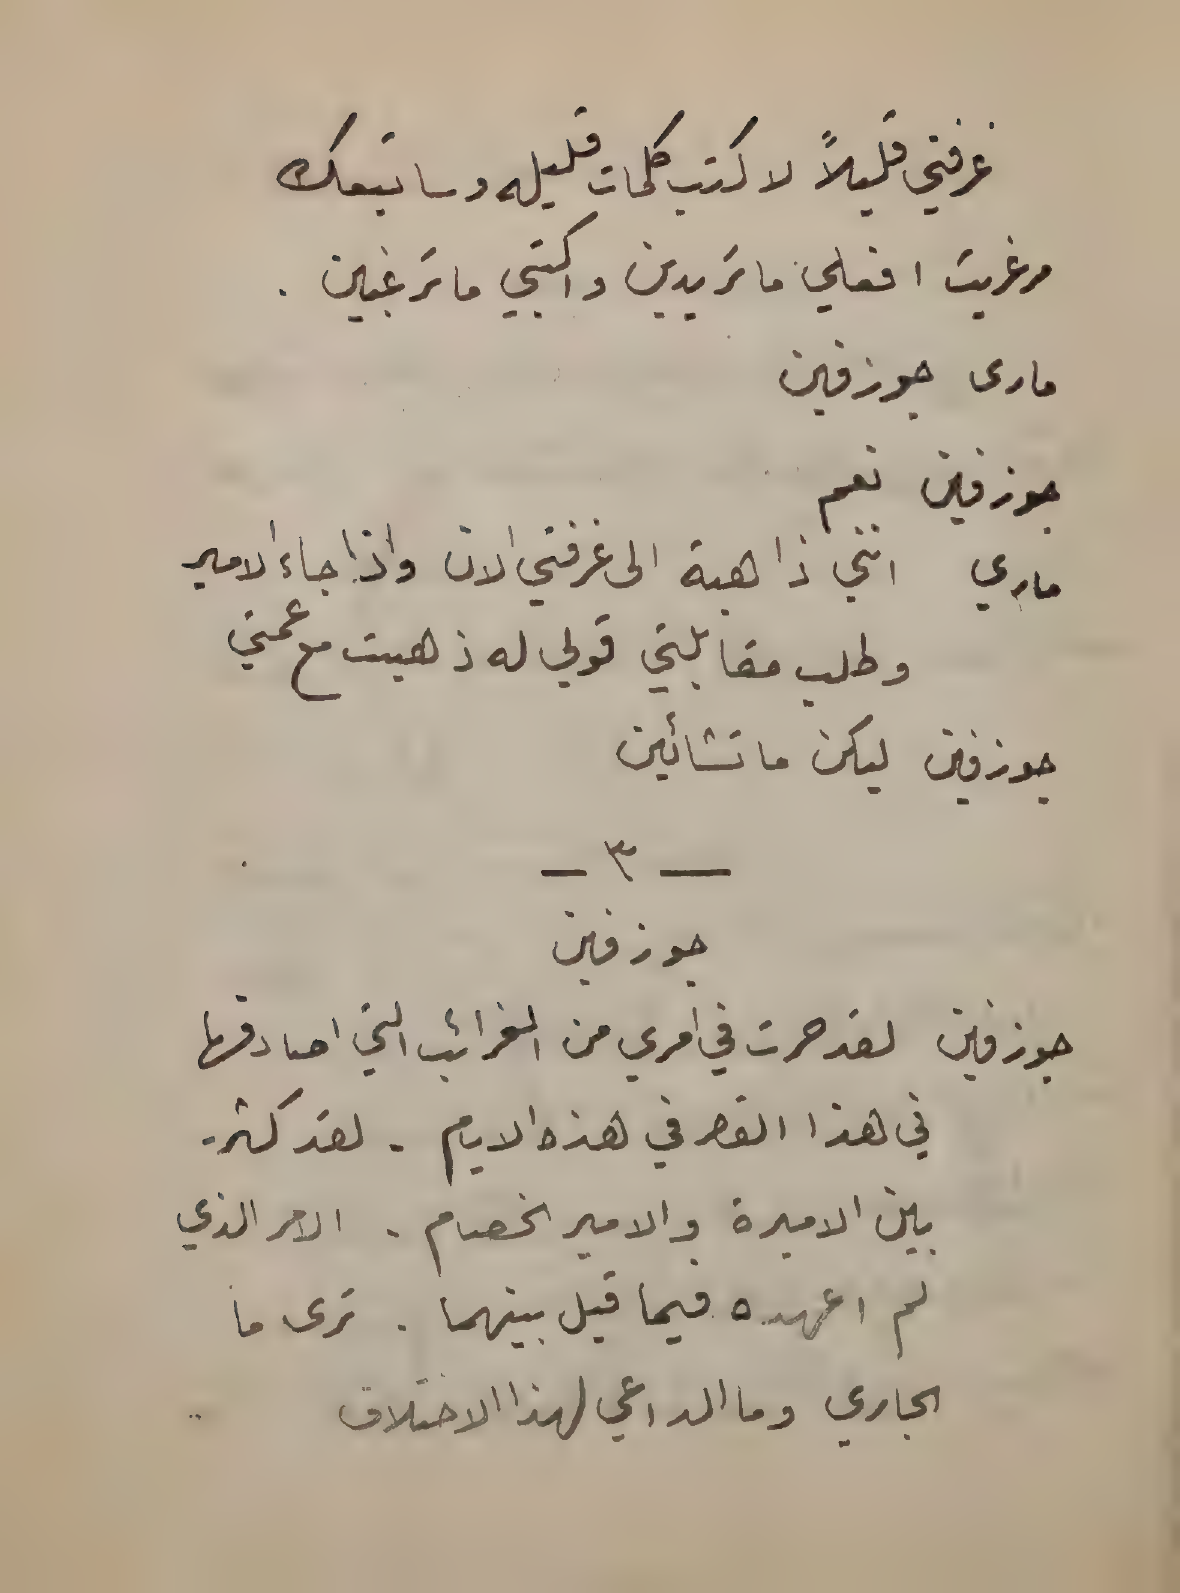 غرفتي قليلاً لاكتب كلمات قليله وساتبعك
مرغريت افعلي ما تريدين واكتبي ما ترغبين .
مارى جوزفين
جوزفين نعم
ماري انني ذاهبة الى غرفتي الان واذا جاء الامير
وطلب مقابلتي قولي له ذهبت مع عمتي
جوزفين ليكن ما تشائين
— ٣ —
جوزفين
جوزفين لقد حرت في امري من الغرائب التي اصادفها
في هذا القصر في هذه الايام . لقد كثر
بين الاميرة والامير الخصام . الامر الذي
لم اعهده فيما قبل بينهما . ترى ما
الجاري وما الداعي لهذا الاختلاق ..